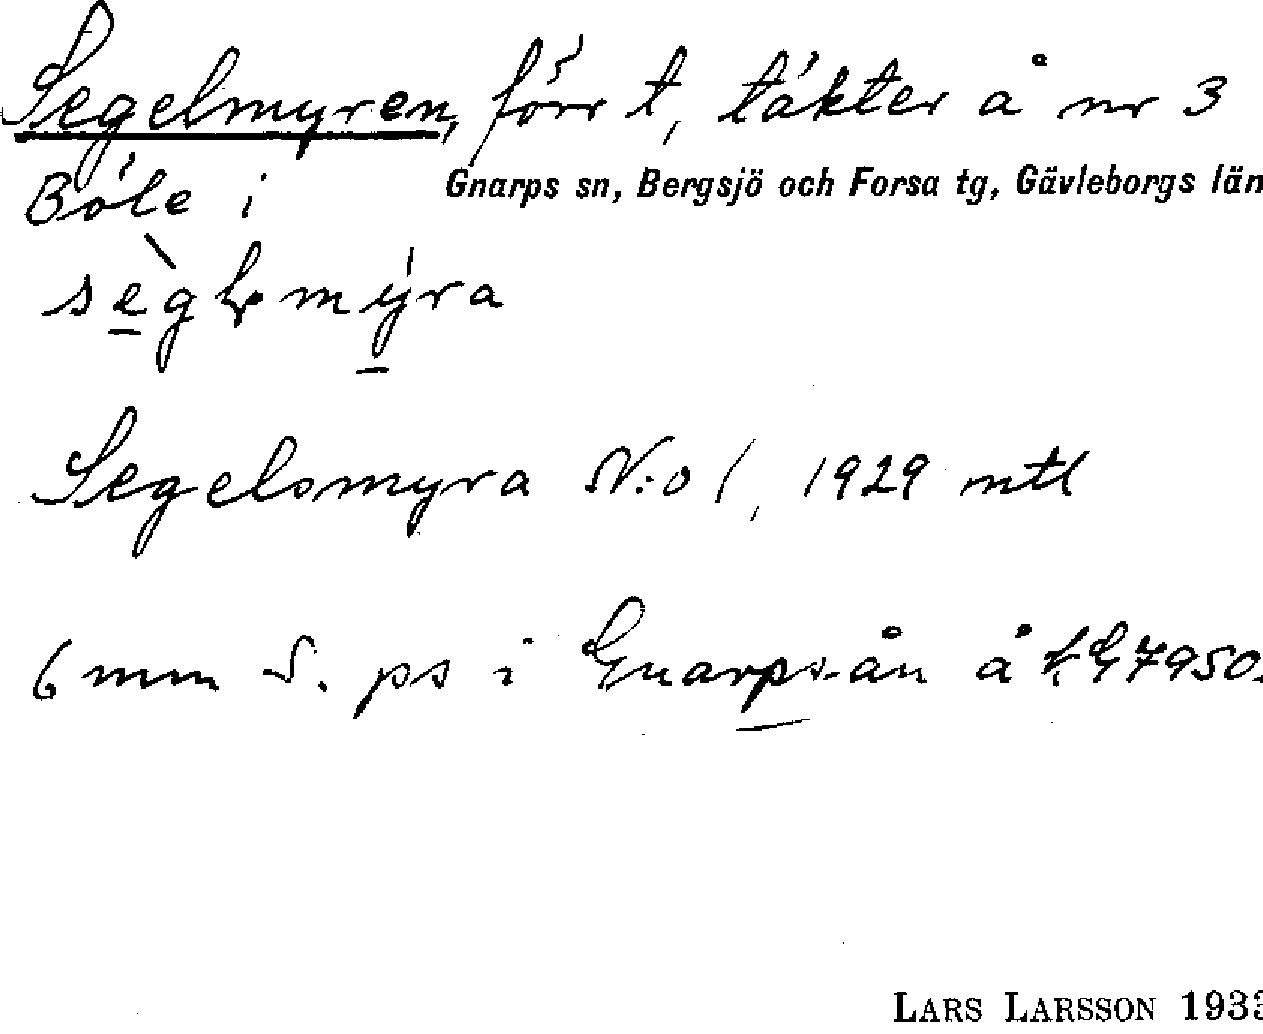 Segelmyren, förr t, täkter å nr 3
Böle i Gnarps sn, Bergsjö och Forsa tg, Gävleborgs län
sègḷmýra
Segelsmyra N:o 1, 1929 mtl
6 mm S. ps i Gnarpsån å f. G 7950.
LARS LARSSON 1933